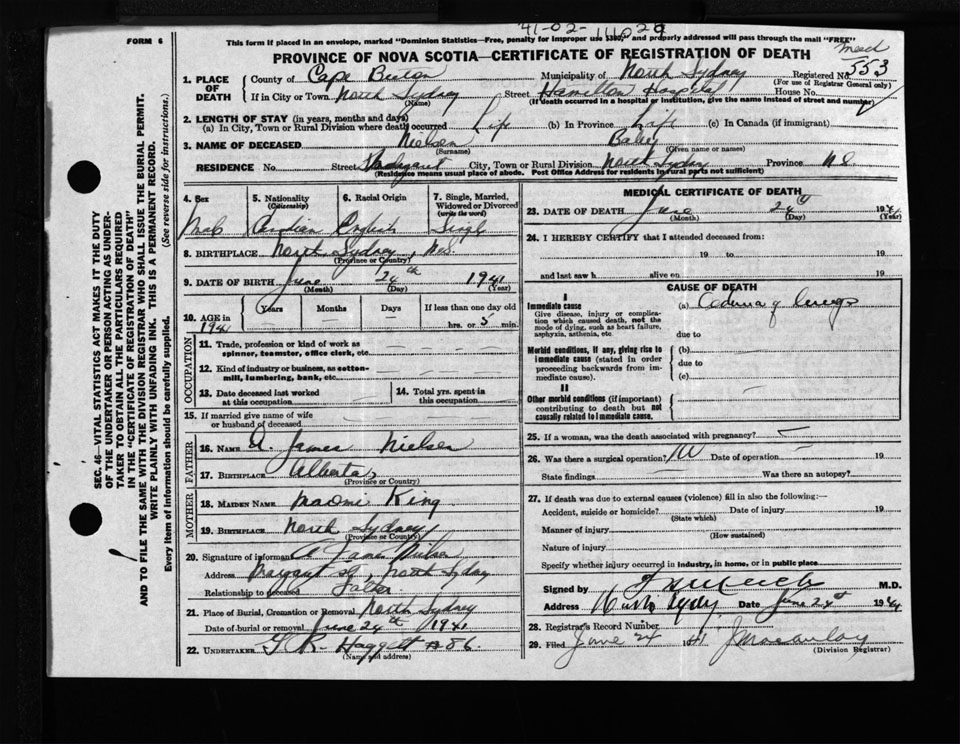 41-02-
FORM 6
This form if placed in an envelope, marked "Dominion Statistics—Free, penalty for improper use $300," and properly addressed will pass through the mail "FREE"
PROVINCE OF NOVA SCOTIA—CERTIFICATE OF REGISTRATION OF DEATH
Registered No. 553
(For use of Registrar General only)
1. PLACE OF DEATH
County of Cape Breton Municipality of North Sydney
If in City or Town North Sydney Street Hamilton Hospital House No.
(Name) (If death occurred in a hospital or institution, give the name instead of street and number)
2. LENGTH OF STAY (in years, months and days)
(a) In City, Town or Rural Division where death occurred Life (b) In Province Life (c) In Canada (if immigrant)
3. NAME OF DECEASED Nielsen Baby
(Surname) (Given name or names)
RESIDENCE No. Street Margaret City, Town or Rural Division North Sydney Province N.S.
(Residence means usual place of abode. Post Office Address for residents in rural parts not sufficient)
SEC. 46—VITAL STATISTICS ACT MAKES IT THE DUTY
OF THE UNDERTAKER OR PERSON ACTING AS UNDER-
TAKER TO OBTAIN ALL THE PARTICULARS REQUIRED
IN THE "CERTIFICATE OF REGISTRATION OF DEATH"
AND TO FILE THE SAME WITH THE DIVISION REGISTRAR WHO SHALL ISSUE THE BURIAL PERMIT.
WRITE PLAINLY WITH UNFADING INK. THIS IS A PERMANENT RECORD.
Every item of information should be carefully supplied. (See reverse side for instructions.)
4. Sex
Male
5. Nationality
(Citizenship)
Canadian
6. Racial Origin
English
7. Single, Married,
Widowed or Divorced
(write the word)
Single
8. BIRTHPLACE North Sydney, N.S.
(Province or Country)
9. DATE OF BIRTH June 24th 1941
(Month) (Day) (Year)
10. AGE in
1941
Years Months Days If less than one day old
hrs. or 5 min.
OCCUPATION
11. Trade, profession or kind of work as
spinner, teamster, office clerk, etc.
12. Kind of industry or business, as cotton-
mill, lumbering, bank, etc.
13. Date deceased last worked
at this occupation
14. Total yrs. spent in
this occupation
15. If married give name of wife
or husband of deceased
FATHER
16. NAME A. James Nielsen
17. BIRTHPLACE Alberta
(Province or Country)
MOTHER
18. MAIDEN NAME Naomi King
19. BIRTHPLACE North Sydney
(Province or Country)
20. Signature of informant A James Nielsen
Address Margaret St, North Sydney
Relationship to deceased Father
21. Place of Burial, Cremation or Removal North Sydney
Date of burial or removal June 24th 1941
22. UNDERTAKER Haggett 86.
(Name and address)
MEDICAL CERTIFICATE OF DEATH
23. DATE OF DEATH June 24th 1941
(Month) (Day) (Year)
24. I HEREBY CERTIFY that I attended deceased from:
19 to 19
and last saw h alive on 19
CAUSE OF DEATH
I
Immediate cause
Give disease, injury or complica-
tion which caused death, not the
mode of dying, such as heart failure,
asphyxia, asthenia, etc.
(a) Edema of lungs
due to
Morbid conditions, if any, giving rise to
immediate cause (stated in order
proceeding backwards from im-
mediate cause).
(b)
due to
(c)
II
Other morbid conditions (if important)
contributing to death but not
causally related to immediate cause.
25. If a woman, was the death associated with pregnancy?
26. Was there a surgical operation? No Date of operation 19
State findings Was there an autopsy?
27. If death was due to external causes (violence) fill in also the following:—
Accident, suicide or homicide? Date of injury 19
(State which)
Manner of injury
(How sustained)
Nature of injury
Specify whether injury occurred in industry, in home, or in public place
Signed by M.D.
Address North Sydney Date June 24th 1941
28. Registrar's Record Number
29. Filed June 24 1941
(Division Registrar)